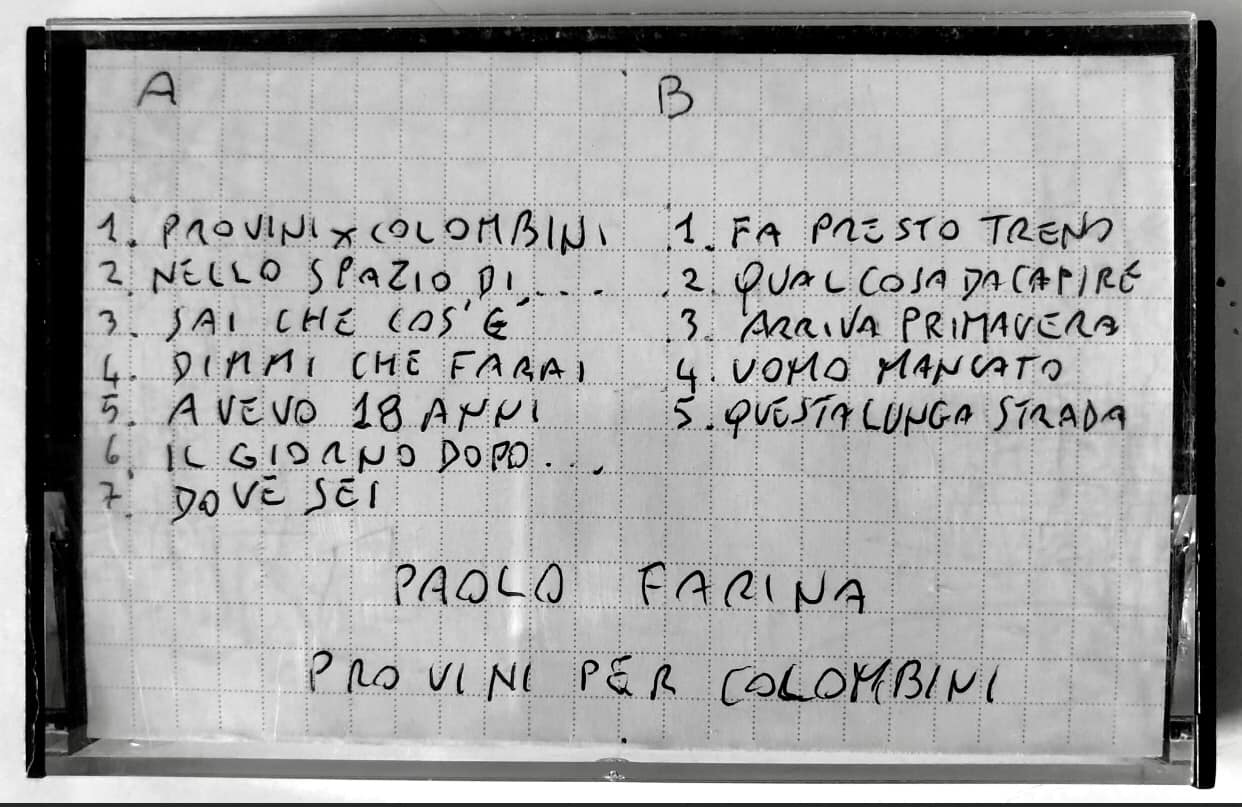 A
1. PROVINI X COLOMBINI
2. NELLO SPAZIO DI....
3. SAI CHE COS'È
4. DIMMI CHE FARAI
5. AVEVO 18 ANNI
6. IL GIORNO DOPO...
7. DOVE SEI
B
1. FA PRESTO TRENO
2. QUALCOSA DA CAPIRE
3. ARRIVA PRIMAVERA
4. UOMO MANCATO
5. QUESTA LUNGA STRADA
PAOLO FARINA
PROVINI PER COLOMBINI